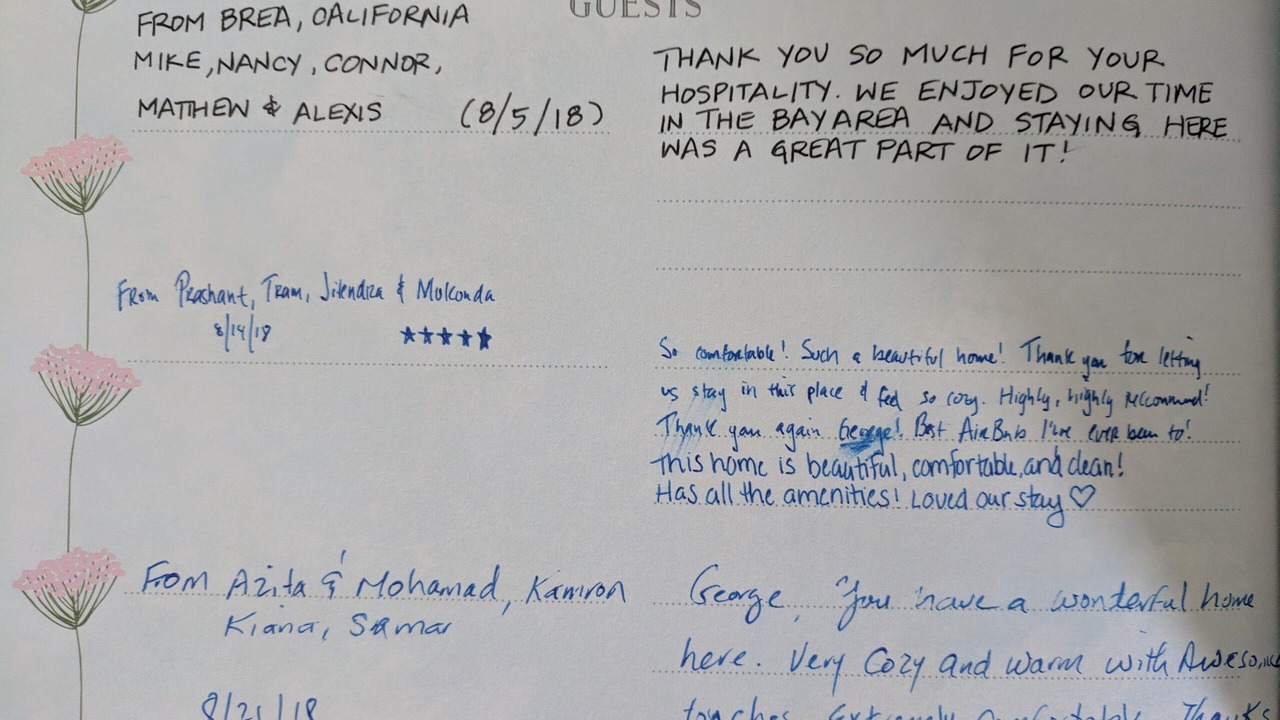 GUESTS
FROM BREA, CALIFORNIA
MIKE, NANCY, CONNOR,
MATTHEW & ALEXIS (8/5/18)
THANK YOU SO MUCH FOR YOUR
HOSPITALITY. WE ENJOYED OUR TIME
IN THE BAY AREA AND STAYING HERE
WAS A GREAT PART OF IT!
From Prashant, Tram, Jitendra & Mulkonda
8/14/18 ★★★★★
So comfortable! Such a beautiful home! Thank you for letting
us stay in this place & feel so cozy. Highly, highly recommend!
Thank you again George! Best AirBnb I've ever been to!
This home is beautiful, comfortable, and clean!
Has all the amenities! Loved our stay ♡
From Azita & Mohamad, Kamron
Kiana, Samar
8/21/18
George, You have a wonderful home
here. Very Cozy and warm with Awesome
touches. Extremely comfortable. Thanks